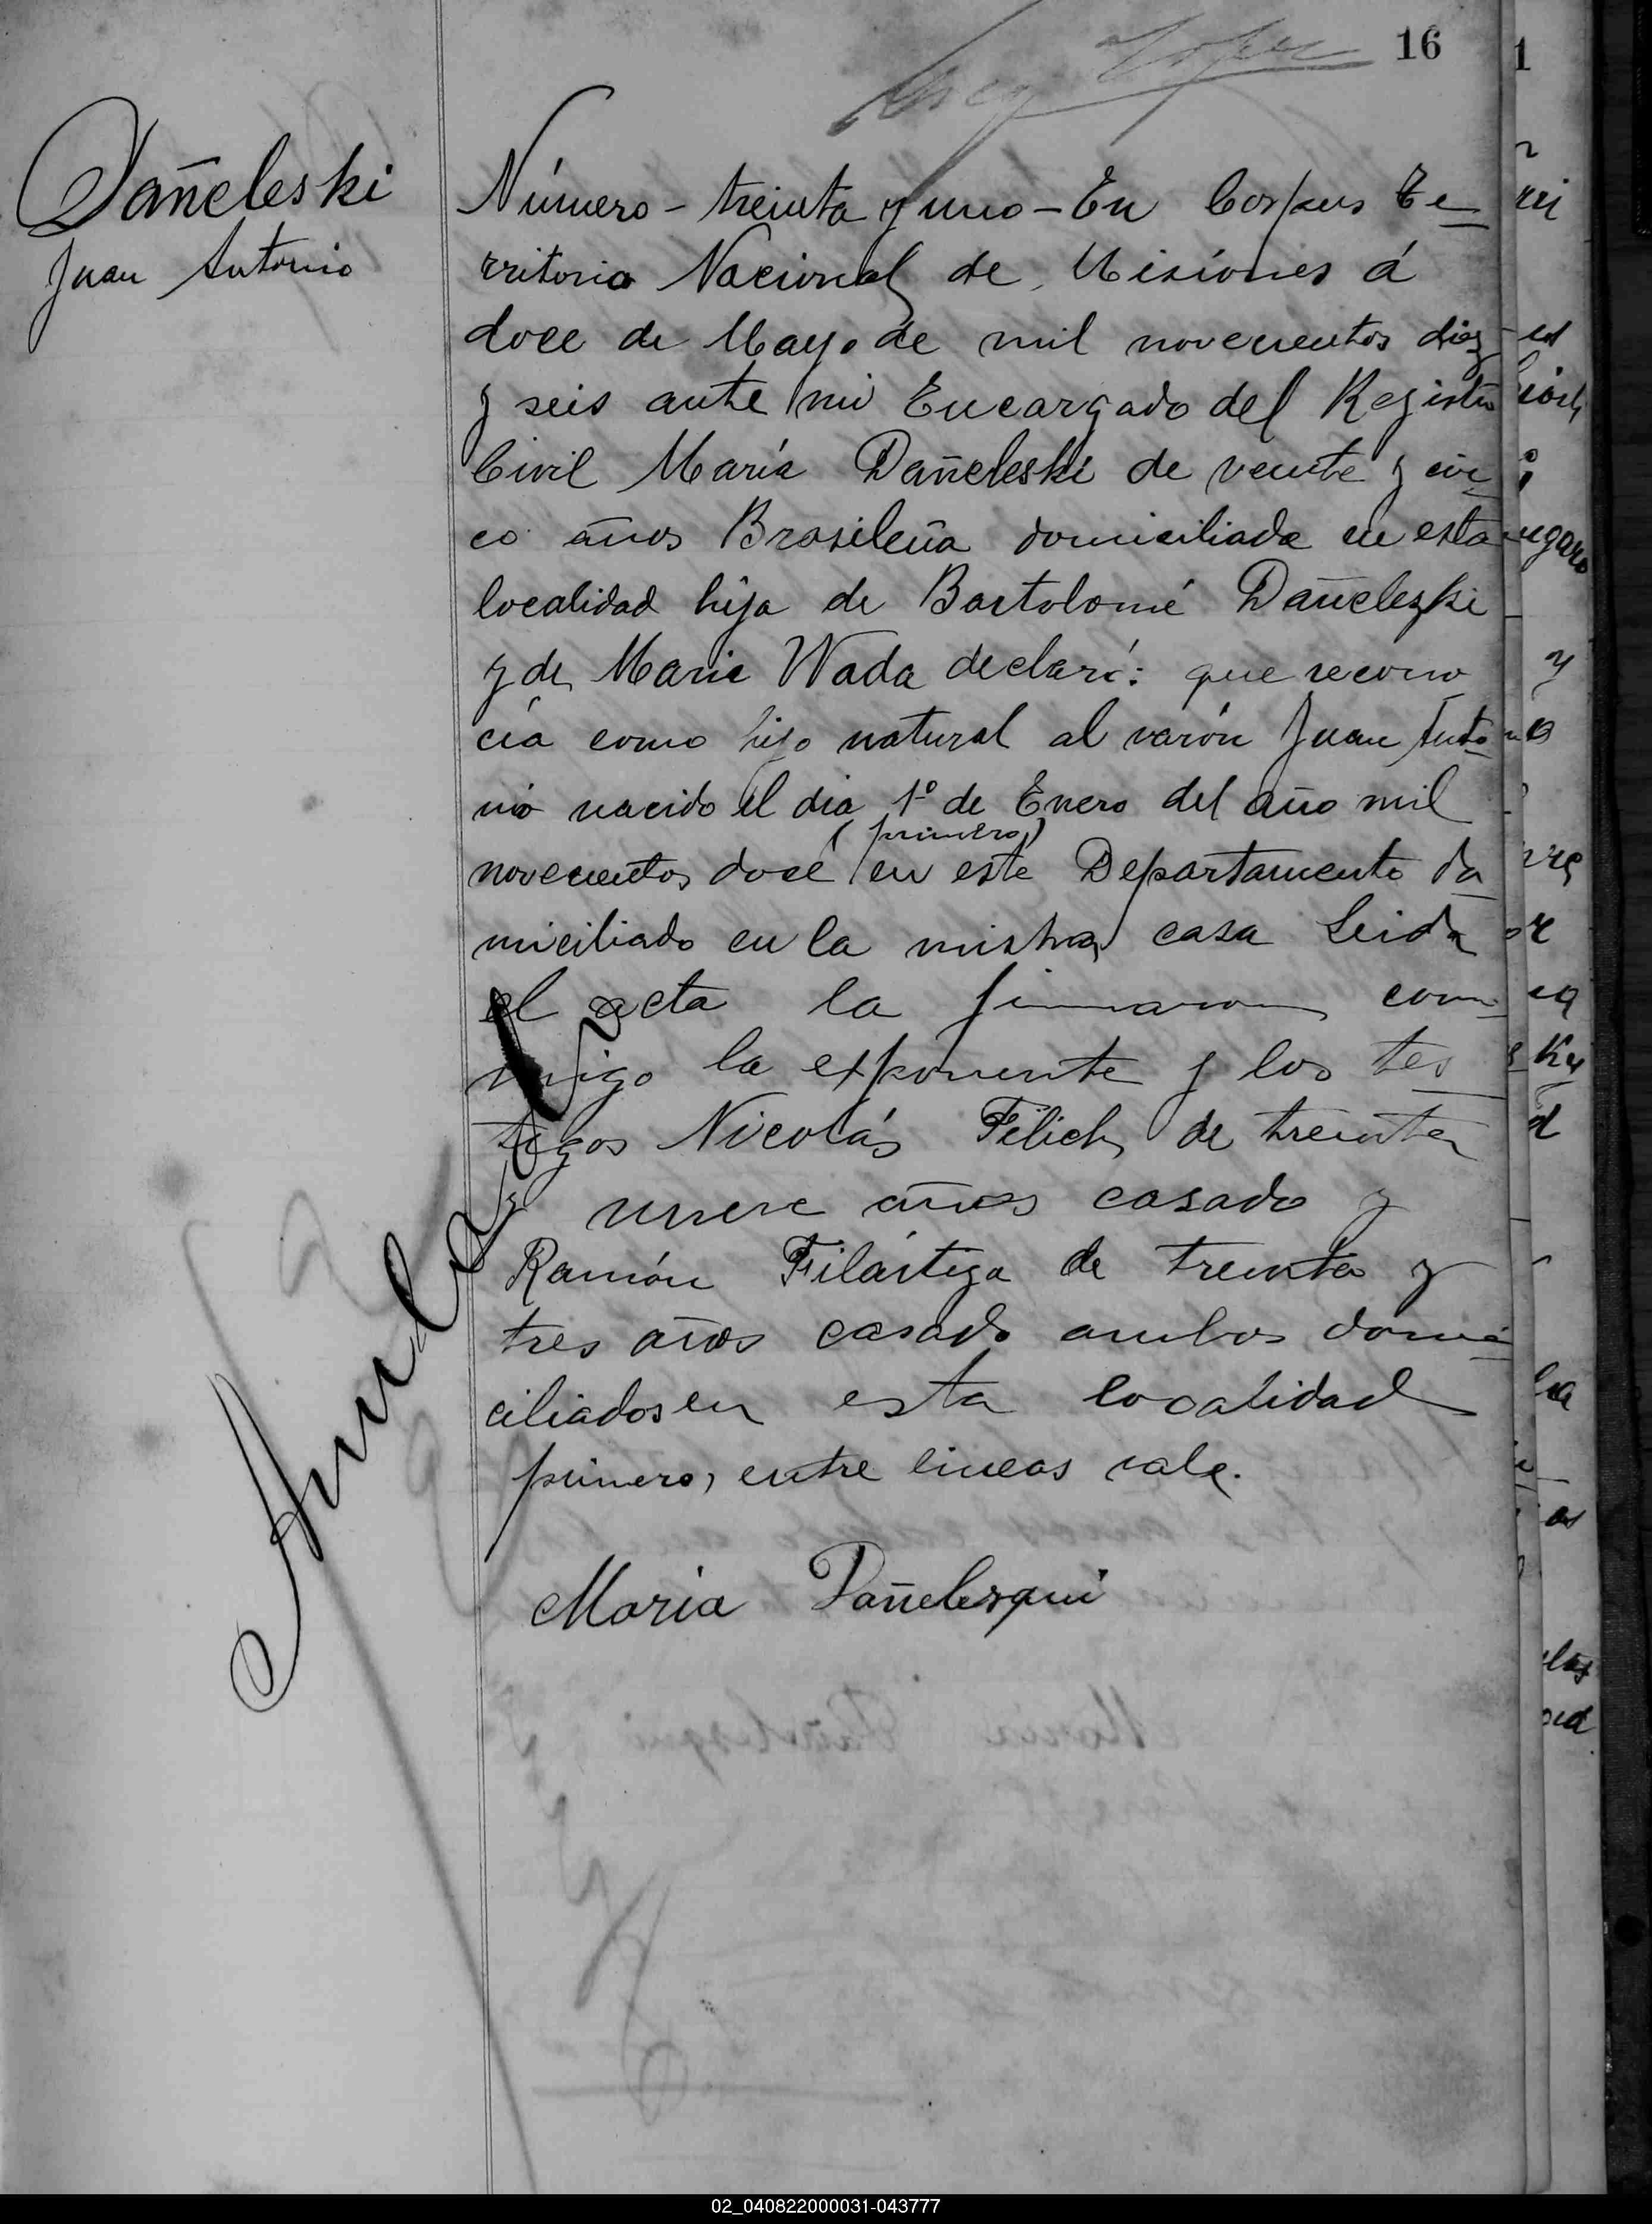 16
Dañeleski
Juan Antonio
Número - treinta y uno - En Corpus Te
rritorio Nacional de Misiones á
doce de Mayo de mil novecientos diez
y seis ante mi Encargado del Registro
Civil María Dañeleski de veinte y cin
co años Brasileña domiciliada en esta
localidad hija de Bartolomé Dañeleski
y de Maria Wada declaró: que recono
cía como hijo natural al varón Juan Anto
nio nacido el dia 1º de Enero del año mil
(primero)
novecientos doce en este Departamento do
miciliado en la misma casa Leida
el acta la firmaron con
migo la exponente y los tes
tigos Nicolás Filich de treinta
nueve años casado y
Ramón Filártiga de treinta y
tres años casado ambos domi
ciliados en esta localidad
primero, entre lineas vale.
Maria Dañelesqui
Anulada
02_040822000031-043777